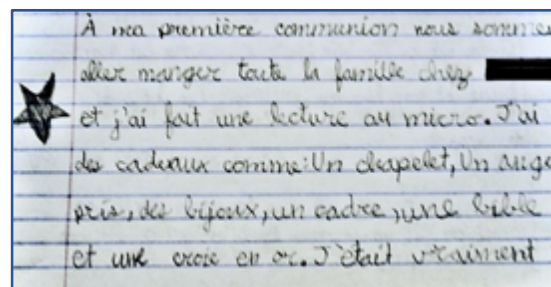 À ma première communion nous somme
aller manger toute la famille chez
et j'ai fait une lecture au micro. J'ai
des cadeaux comme: Un chapelet, Un ange
pris, des bijoux, un cadre, une bible
et une croie en or. J'était vraiment